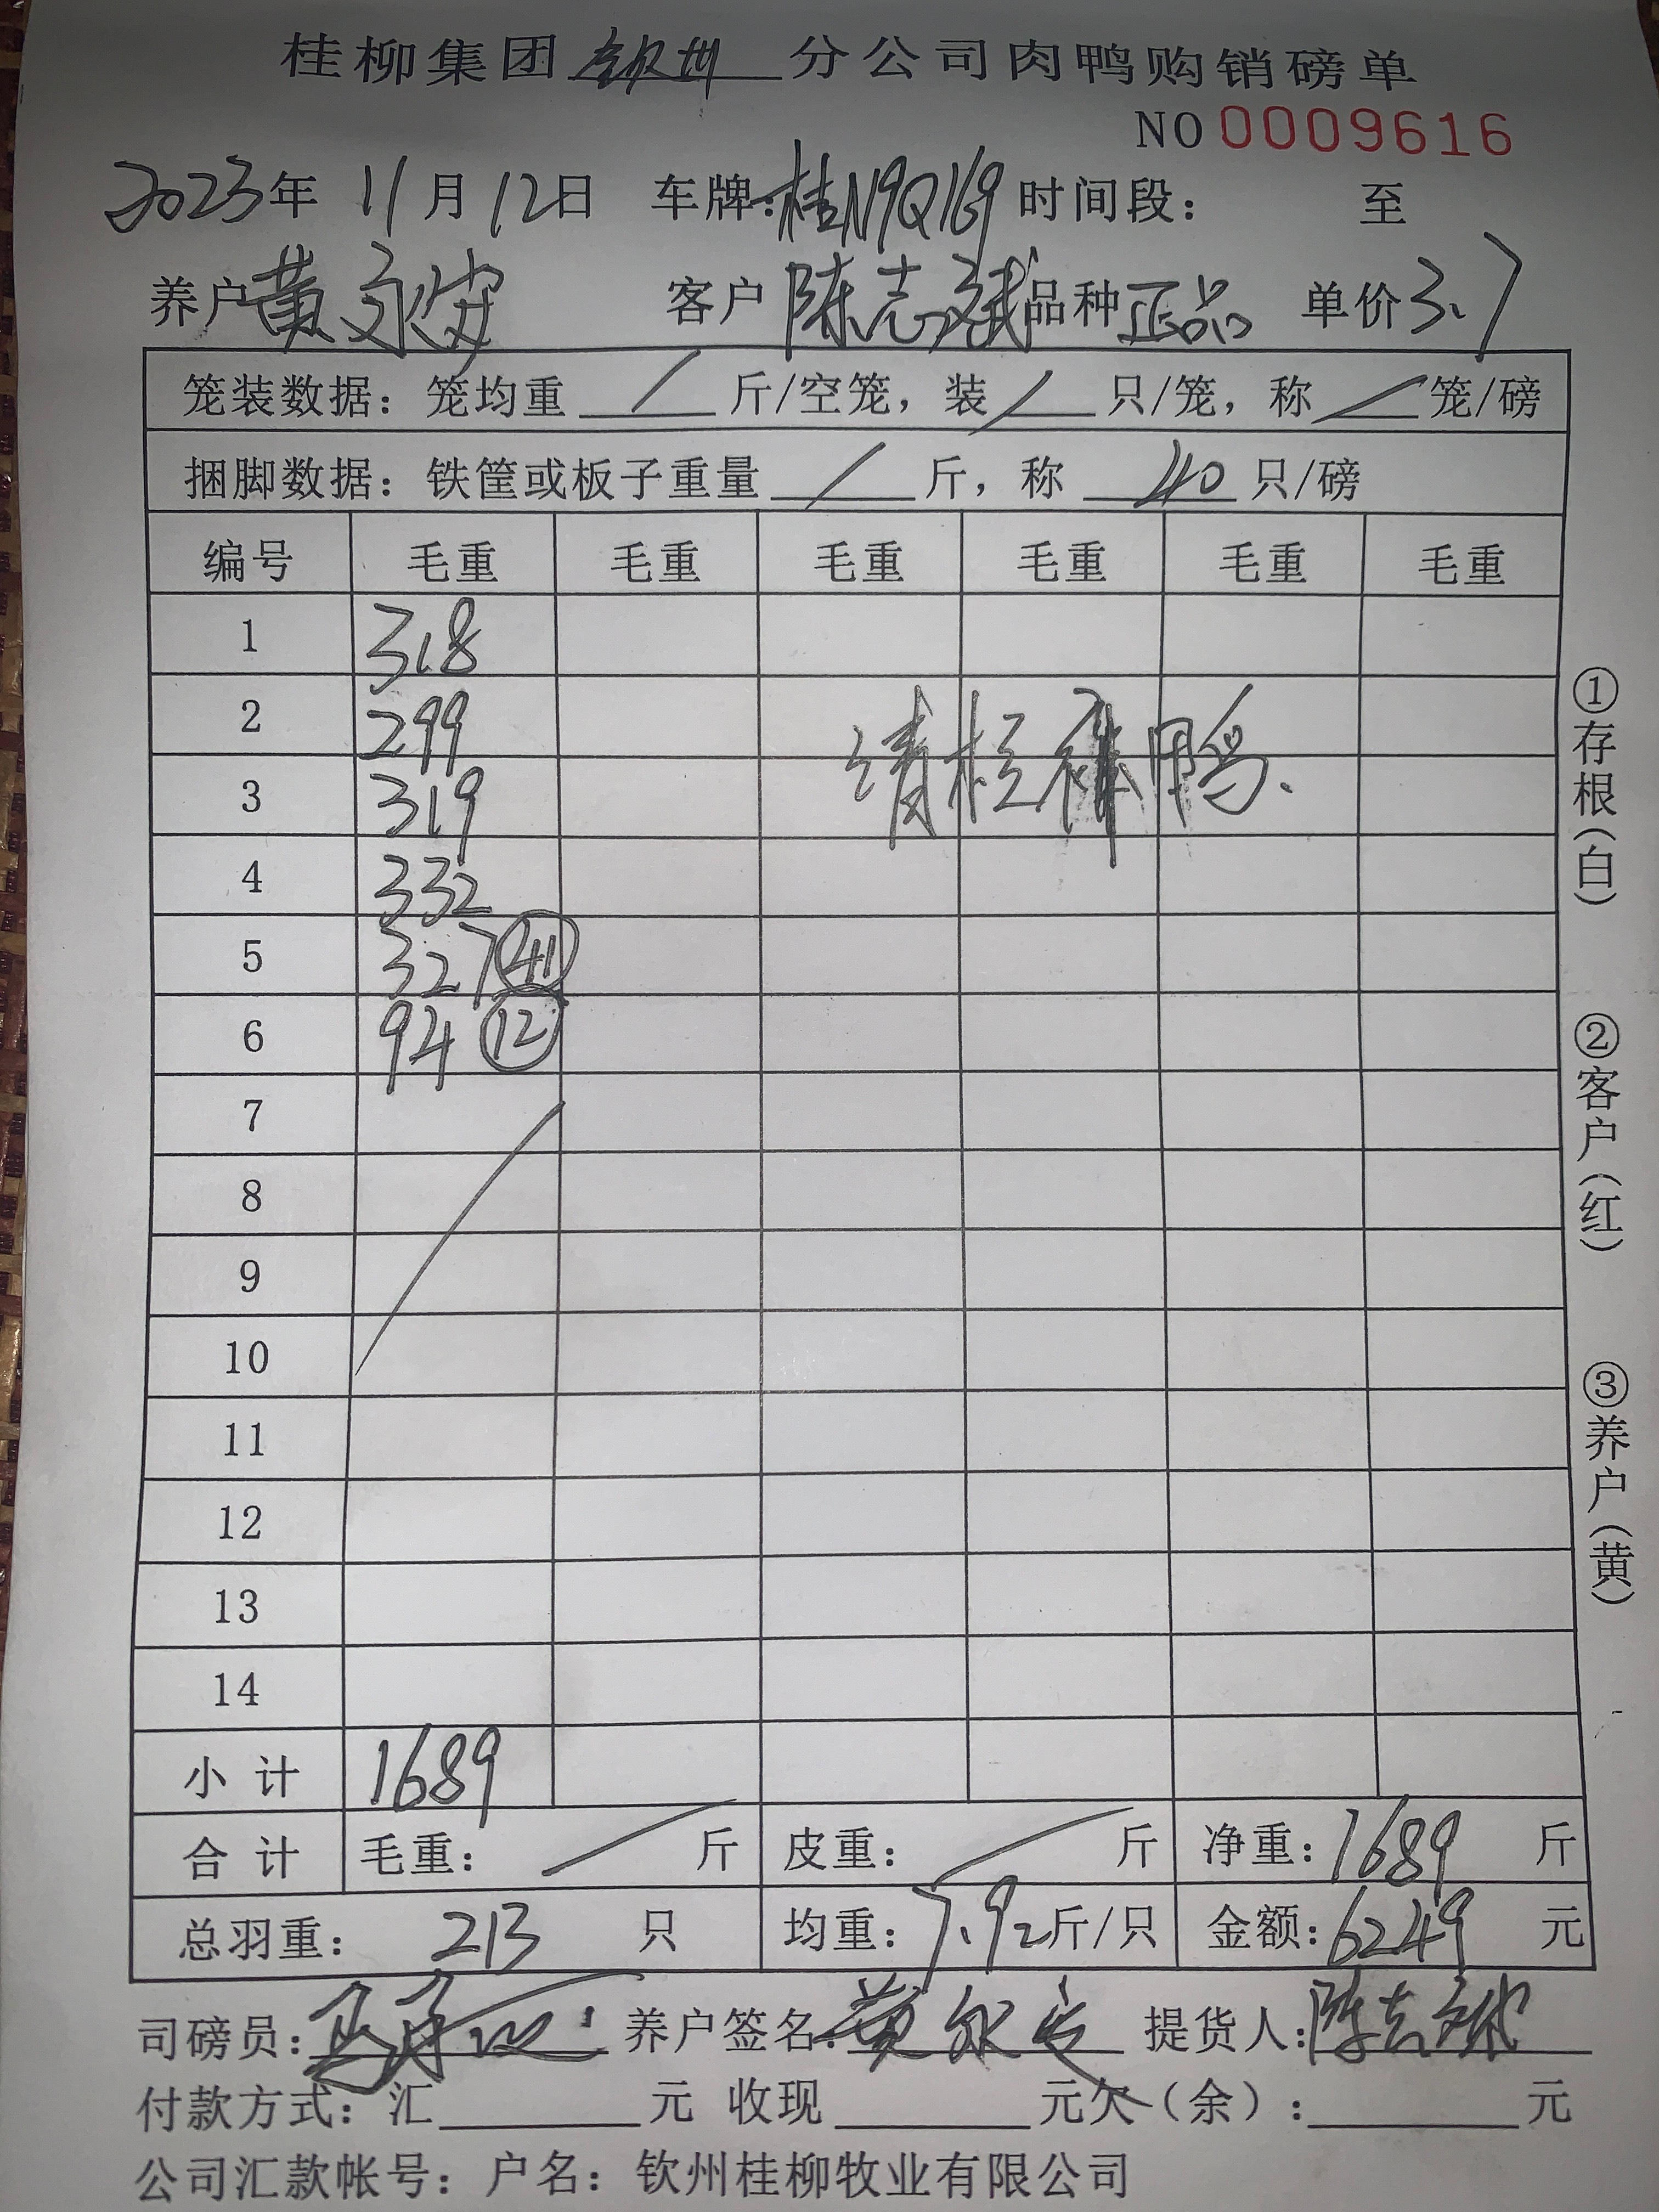 桂柳集团 钦州 分公司肉鸭购销磅单
NO 0009616
2023年 11月 12日 车牌:桂N9Q169 时间段: 至
养户 黄永安 客户 陈志斌 品种 正品 单价 3.7
笼装数据: 笼均重 / 斤/空笼, 装 / 只/笼, 称 / 笼/磅
捆脚数据: 铁筐或板子重量 / 斤, 称 40 只/磅
编号 毛重 毛重 毛重 毛重 毛重 毛重
1 318
2 299
清栏 鸭.
3 319
4 332
5 327 ㊶
6 94 ⑫
7
8
9
10
11
12
13
14
小 计 1689
合 计 毛重: / 斤 皮重: / 斤 净重: 1689 斤
总羽重: 213 只 均重: 7.92 斤/只 金额: 6249 元
司磅员: 养户签名: 黄永安 提货人: 陈志斌
付款方式: 汇 元 收现 元欠(余): 元
公司汇款帐号: 户名: 钦州桂柳牧业有限公司
①存根(白)
②客户(红)
③养户(黄)